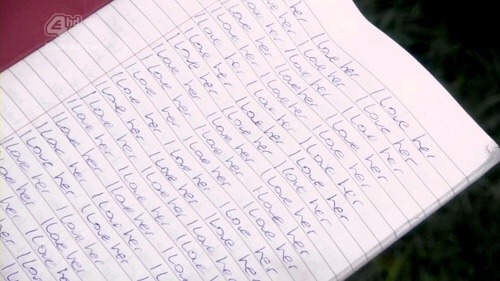 I love her I love her I love her
I love her I love her I love her I love her
I love her I love her I love her I love her
I love her I love her I love her I love her
I love her I love her I love her I love her
I love her I love her I love her I love her
I love her I love her I love her I love her
I love her I love her I love her I love her
I love her I love her I love her
I love her I love her I love her
I love her I love her
I love her I love her
I love her